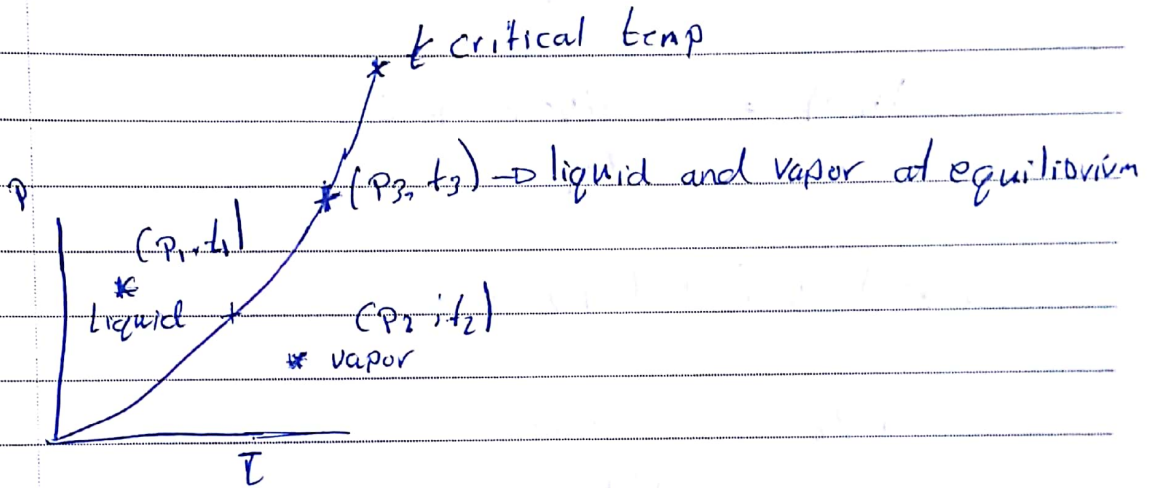 t critical temp
(P3, t3) → liquid and vapor at equilibrium
P
(P1, t1)
Liquid
(P2, t2)
vapor
T